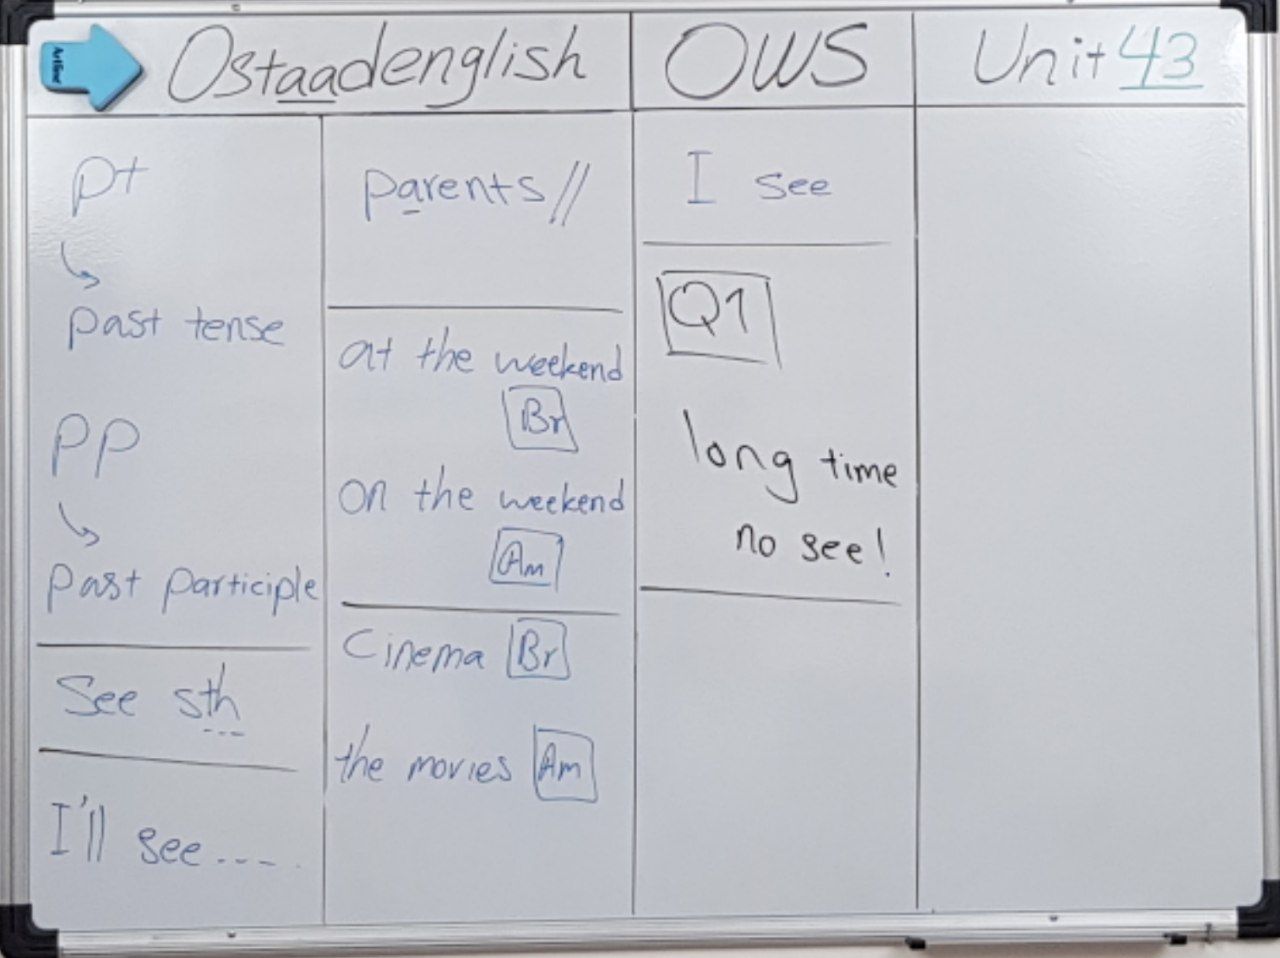 Artline
Ostaadenglish
OWS
Unit 43
pt
past tense
pp
past participle
See sth
I'll see ....
parents //
at the weekend
Br
on the weekend
Am
Cinema Br
the movies Am
I see
Q1
long time
no see!